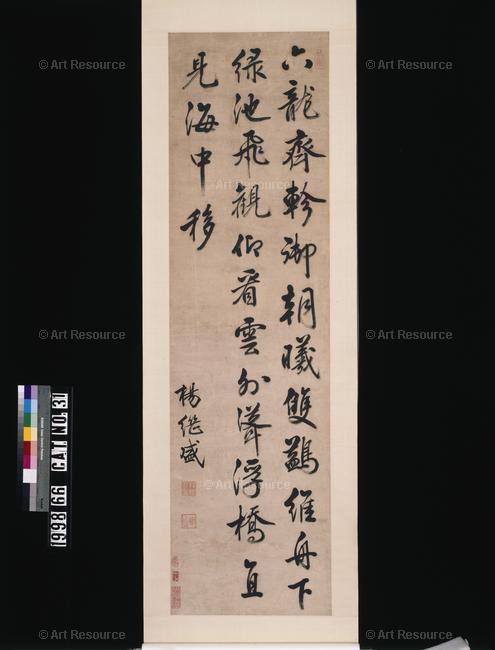 六龍齊軫御朝曦雙鷁維舟下
綠池飛觀仰看雲外聳浮橋直
見海中移
楊繼盛
1998 66 CAT NO. 31
© Art Resource
© Art Resource
© Art Resource
© Art Resource
© Art Resource
© Art Resource
© Art Resource
© Art Resource
© Art Resource
© Art Resource
© Art Resource